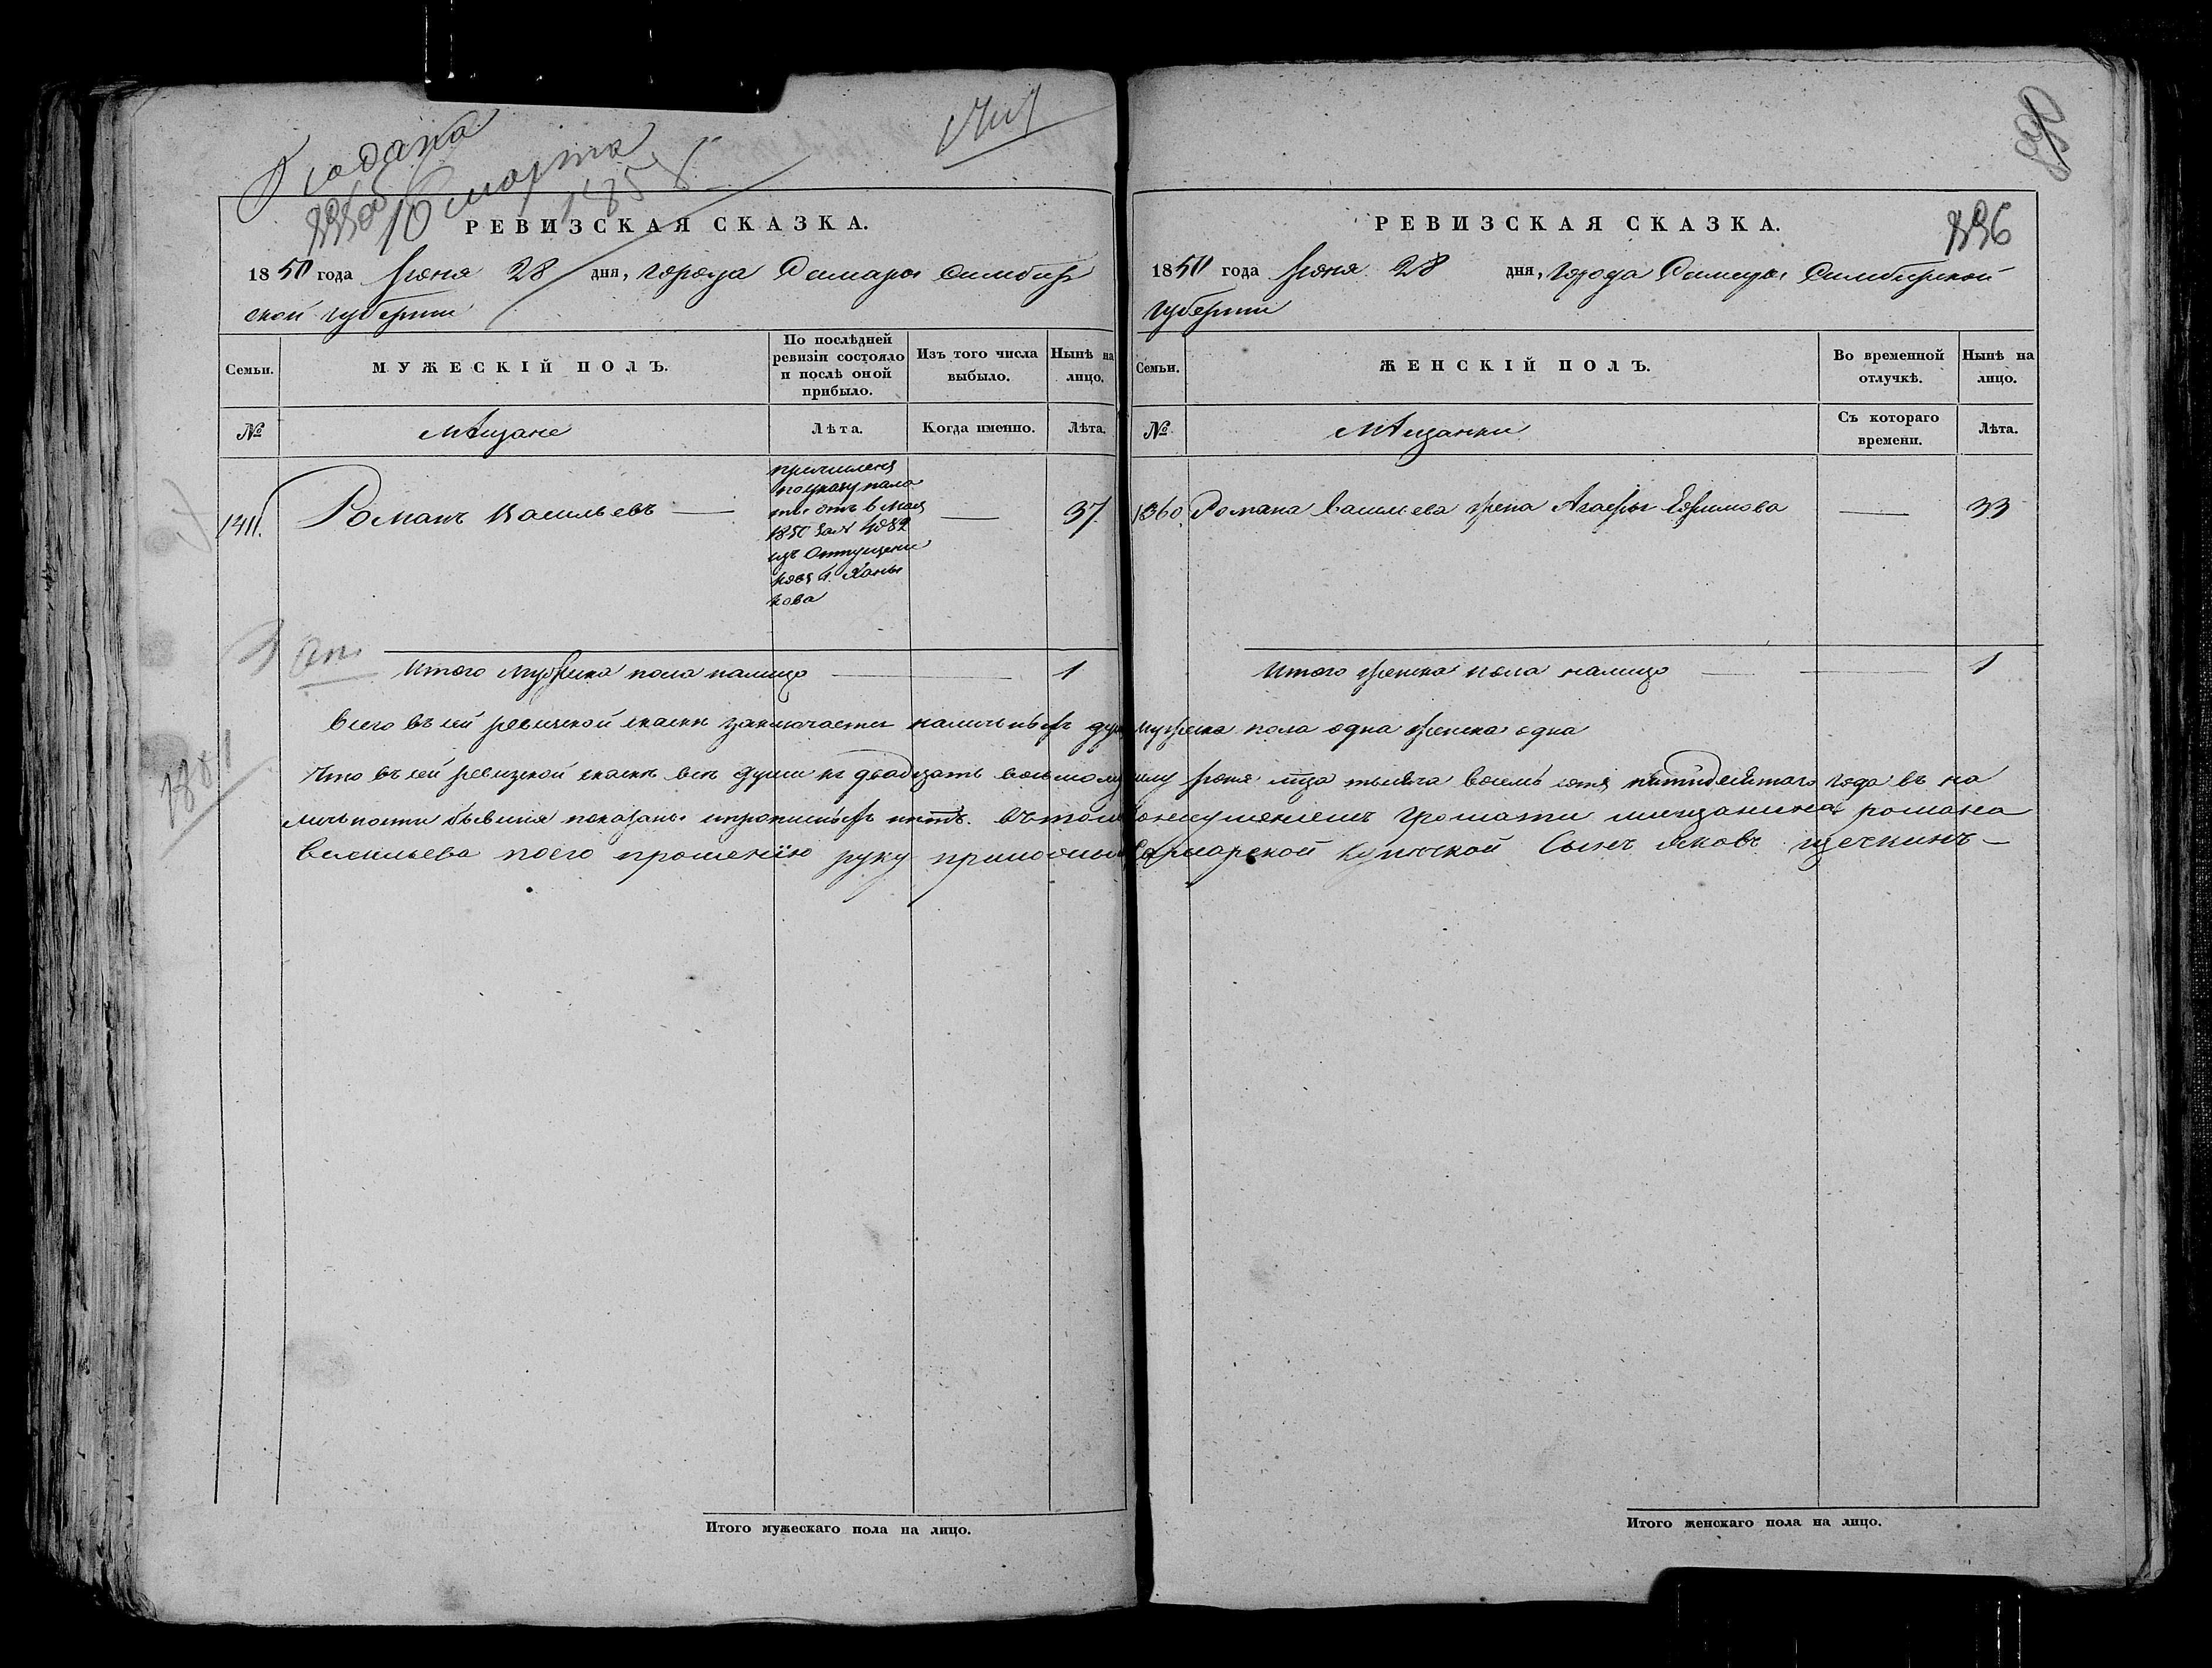 Подана
10 марта
1858
РЕВИЗСКАЯ СКАЗКА.
1850 года Июня 28 дня, города Самары Симбир
ской губернии
Семьи.
МУЖЕСКІЙ ПОЛЪ.
По послѣдней ревизіи состояло и послѣ оной прибыло.
Изъ того числа выбыло.
Нынѣ на лицо.
№
Мѣщане
Лѣта.
Когда именно.
Лѣта.
1411.
Романъ Васильевъ
причисленъ
по указу пала
ты отъ 6 мая
1850 за № 4082
изъ отпущени
ковъ г. Ханы
кова
37
Итого мужеска пола налицо
1
Всего въ сей ревизской сказкѣ заключается наличныхъ душъ мужеска пола одна женска одна
Что въ сей ревизской сказкѣ всѣ души къ двадцать восьмому числу Июня мца тысяча восемь сотъ пятидесятаго года въ на
личности бывшія показаны и прописныхъ нѣтъ. Въ томъ неумѣніемъ грамати мѣщанина романа
Васильева по его прошенію руку приложилъ Самарской купеческой Сынъ яковъ щечкинъ
Итого мужескаго пола на лицо.
896
РЕВИЗСКАЯ СКАЗКА.
1850 года Июня 28 дня, города Самары Симбирской
губернии
Семьи.
ЖЕНСКІЙ ПОЛЪ.
Во временной отлучкѣ.
Нынѣ на лицо.
№
Мѣщанки
Съ котораго времени.
Лѣта.
1360.
Романа Васильева жена Агафья Ефимова
33
Итого женска пола налицо
1
Итого женскаго пола на лицо.